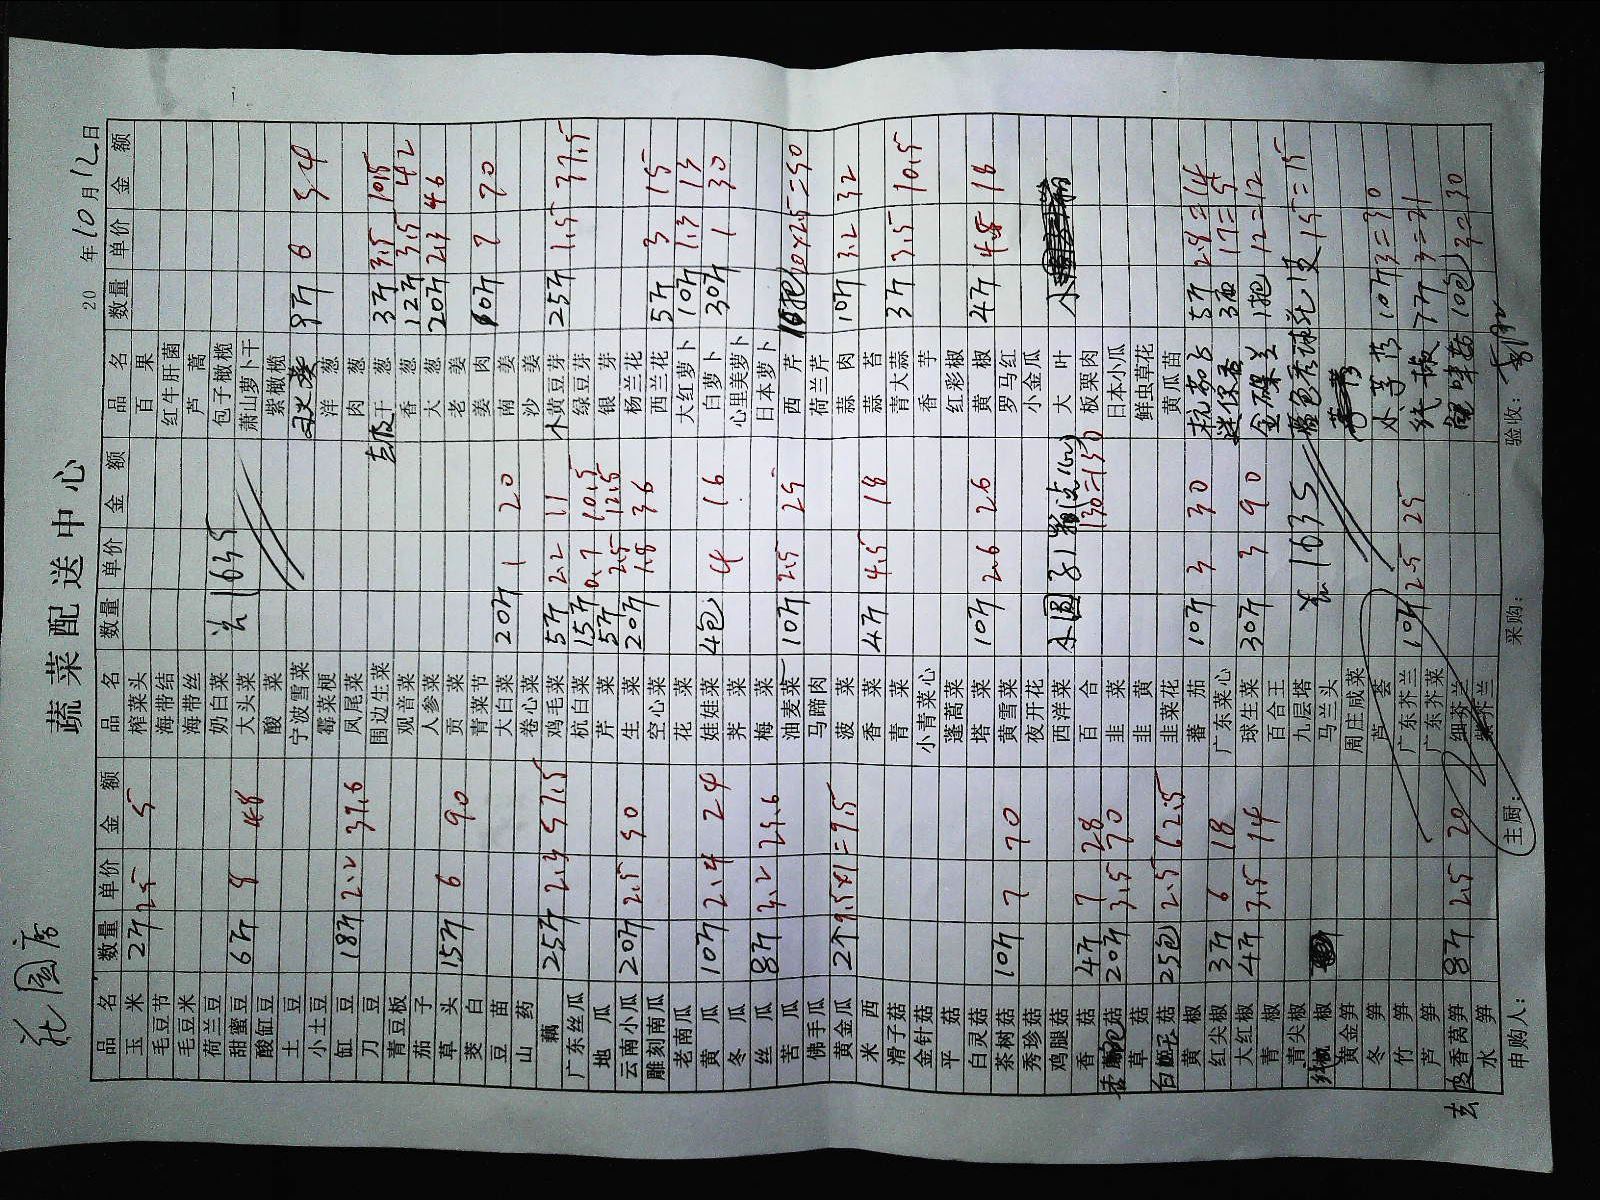 花园店
蔬菜配送中心
20 年10月12日
品名 数量 单价 金额 品名 数量 单价 金额 品名 数量 单价 金额
玉米 2斤 2.5 5 榨菜头 百果
毛豆节 海带结 红牛肝菌
毛豆米 海带丝 芦蒿
荷兰豆 奶白菜 包子橄榄
甜蜜豆 6斤 8 48 大头菜 1635 萧山萝卜干
酸缸豆 酸菜 紫橄榄
土豆 宁波雪菜 9斤 6 54
小土豆 霉菜梗 洋葱
缸豆 18斤 2.2 39.6 凤尾菜 肉葱
刀豆 围边生菜 去皮干葱 3斤 3.5 10.5
青豆板 观音菜 香葱 12斤 3.5 42
茄子 人参菜 大葱 20斤 2.3 46
草头 15斤 6 90 贡菜 老姜
茭白 青菜节 姜肉 10斤 7 70
豆苗 大白菜 20斤 1 20 南姜
山药 卷心菜 沙姜
藕 25斤 2.3 57.5 鸡毛菜 5斤 2.2 11 小黄豆芽 25斤 1.5 37.5
广东丝瓜 杭白菜 15斤 0.7 10.5 绿豆芽
地瓜 芹菜 5斤 2.5 12.5 银芽
云南小瓜 20斤 2.5 50 生菜 20斤 1.8 36 杨兰花
雕刻南瓜 空心菜 西兰花 5斤 3 15
老南瓜 花菜 大红萝卜 10斤 1.3 13
黄瓜 10斤 2.4 24 娃娃菜 4包 4 16 白萝卜 30斤 1 30
冬瓜 荠菜 心里美萝卜
丝瓜 8斤 3.2 25.6 梅菜 日本萝卜
苦瓜 油麦菜 10斤 2.5 25 西芹 20×2.5=50
佛手瓜 马蹄肉 荷兰芹
黄金瓜 2个 9.5×1=9.5 菠菜 蒜肉 10斤 3.2 32
米西 香菜 4斤 4.5 18 蒜苔
滑子菇 青菜 青大蒜 3斤 3.5 10.5
金针菇 小青菜心 香芋
平菇 蓬蒿菜 红彩椒
白灵菇 塔菜 10斤 2.6 26 黄椒 4斤 4.5 18
茶树菇 10斤 7 70 黄雪菜 罗马红
秀珍菇 夜开花 小金瓜
鸡腿菇 西洋菜 小圆子1箱 大叶
香菇 4斤 7 28 百合 130=130 板栗肉
香菇 20斤 3.5 70 韭菜 日本小瓜
草菇 韭黄 鲜虫草花
白玉菇 25包 2.5 62.5 韭菜花 黄瓜苗
黄椒 蕃茄 10斤 3 30 杭茄子 5斤 2.8=14
红尖椒 3斤 6 18 广东菜心 迷你香
大红椒 4斤 3.5 14 球生菜 30斤 3 90 金碟兰 1把 12=12
青椒 百合王 15=15
青尖椒 九层塔 1635
椒 马兰头
黄金笋 周庄咸菜 10斤 3=30
冬笋 芦荟 7斤 3=21
竹笋 广东芥兰 10斤 2.5 25 10包 3=30
芦笋 广东芥菜
去皮香莴笋 8斤 2.5 20 细芥兰
水笋 紫芥兰
申购人： 主厨： 采购： 验收：